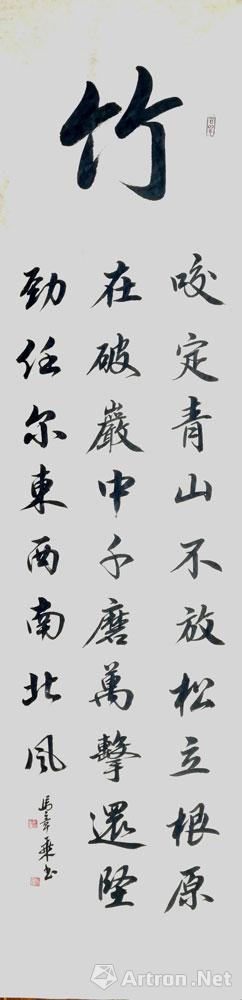 竹
咬定青山不放松立根原
在破巖中千磨萬擊還堅
勁任尔東西南北风
Artron.Net